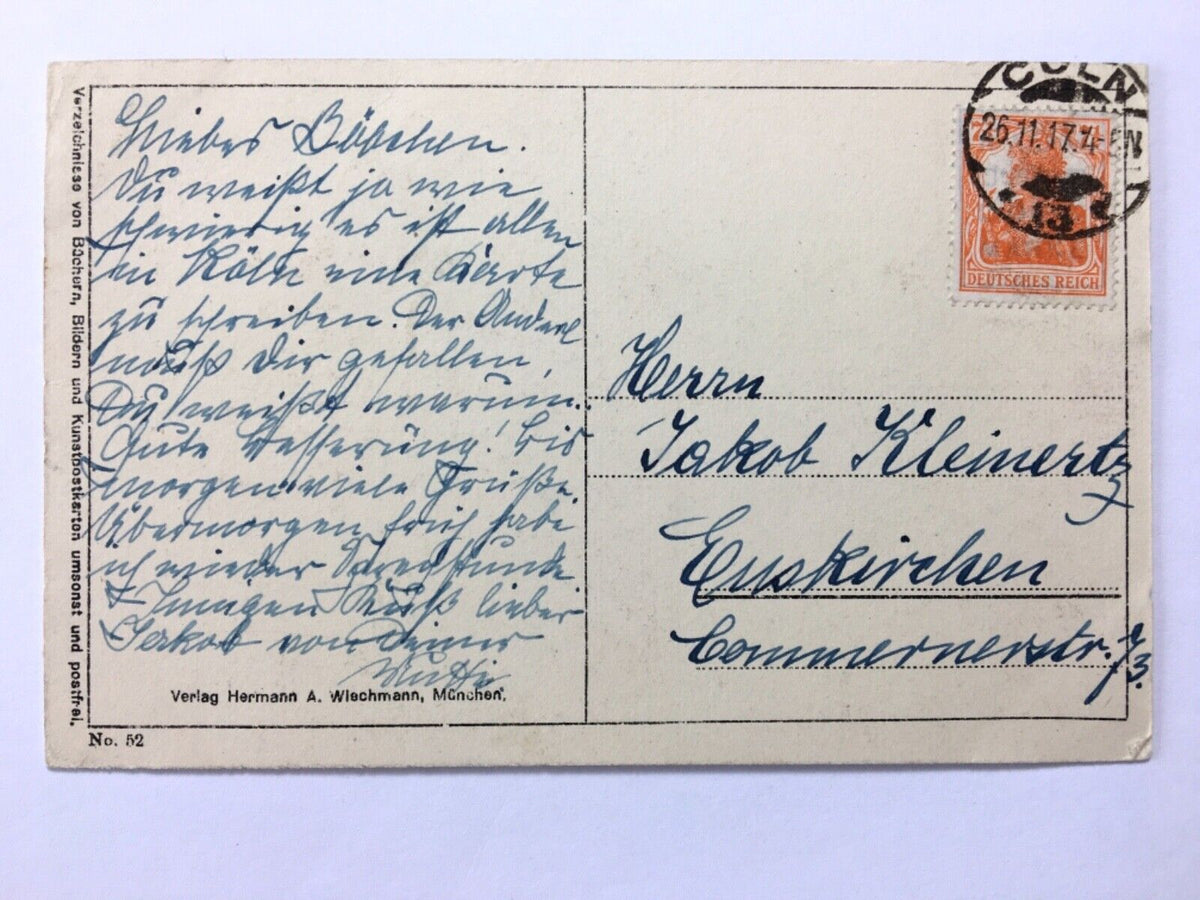 Liebes Böbchen.
Du weißt ja wie
schwierig es ist allen
in Köln eine Karte
zu schreiben. Der
muß Dir gefallen,
Du weißt warum.
Gute Besserung! Bis
morgen viele Grüße.
Übermorgen früh habe
ich wieder
Kuß lieber
Jakob von Deiner
Mutti
Verlag Hermann A. Wiechmann, München.
No. 52
Verzeichnisse von Büchern, Bildern und Kunstpostkarten umsonst und postfrei.
CÖLN
26.11.17.4-5N
13
DEUTSCHES REICH
Herrn
Jakob Kleinertz
Euskirchen
Commernerstr.